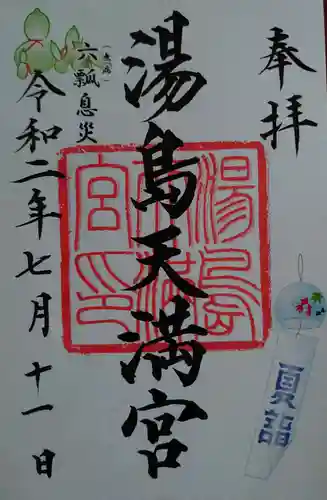 奉拝
湯島天満宮
湯島天満宮印
六瓢息災
(無病)
令和二年七月十一日
夏詣